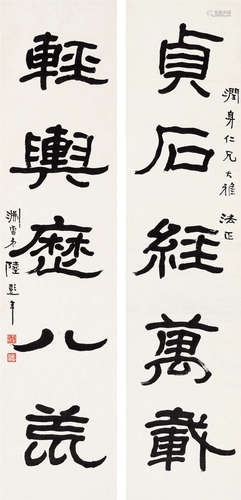 貞石經萬載
潤身仁兄大雅 法正
輕輿歷八荒
淵雷弟陸